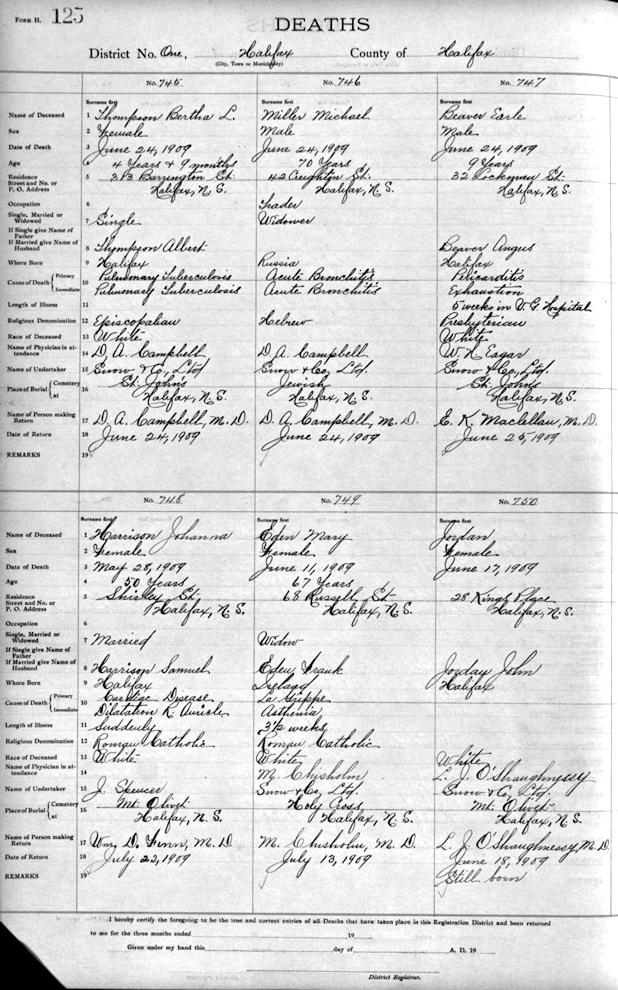 FORM H. 125
DEATHS
District No. One, Halifax County of Halifax
(City, Town or Municipality)
No. 745 No. 746 No. 747
Surname first Surname first Surname first
Name of Deceased 1 Thompson Bertha L. Miller Michael Beaver Earle
Sex 2 Female Male Male
Date of Death 3 June 24, 1909 June 24, 1909 June 24, 1909
Age 4 4 Years & 9 months 70 Years 9 Years
Residence 5 Barrington St. 42 Creighton St. 32 St.
Street and No. or
P. O. Address Halifax, N.S. Halifax, N.S. Halifax, N.S.
Occupation 6 Trader
Single, Married or
Widowed 7 Single Widower
If Single give Name of
Father
If Married give Name of
Husband 8 Thompson Albert Beaver Angus
Where Born 9 Halifax Russia Halifax
Cause of Death { Primary 10 Pulmonary Tuberculosis Acute Bronchitis Pericarditis
Immediate Pulmonary Tuberculosis Acute Bronchitis Exhaustion
Length of Illness 11 5 weeks in V.G. Hospital
Religious Denomination 12 Episcopalian Hebrew Presbyterian
Race of Deceased 13 White White
Name of Physician in at-
tendance 14 D. A. Campbell D. A. Campbell W. N. Eagar
Name of Undertaker 15 Snow & Co, Ltd. Snow & Co, Ltd. Snow & Co, Ltd.
Place of Burial { Cemetery 16 St. John's Jewish St. John's
at Halifax, N.S. Halifax, N.S. Halifax, N.S.
Name of Person making
Return 17 D. A. Campbell, M.D. D. A. Campbell, M.D. E. K. Maclellan, M.D.
Date of Return 18 June 24, 1909 June 24, 1909 June 25, 1909
REMARKS 19
No. 748 No. 749 No. 750
Surname first Surname first Surname first
Name of Deceased 1 Harrison Johanna Eden Mary Jordan
Sex 2 Female Female Female
Date of Death 3 May 28, 1909 June 11, 1909 June 17, 1909
Age 4 50 Years 67 Years
Residence 5 Shirley St. 68 Russell St 28 Kings Place
Street and No. or
P. O. Address Halifax, N.S. Halifax, N.S. Halifax, N.S.
Occupation 6
Single, Married or
Widowed 7 Married Widow
If Single give Name of
Father
If Married give Name of
Husband 8 Harrison Samuel Eden Frank Jordan John
Where Born 9 Halifax Ireland Halifax
Cause of Death { Primary 10 Cardiac Disease La Grippe
Immediate Dilatation R. Auricle Asthenia
Length of Illness 11 Suddenly 3½ weeks
Religious Denomination 12 Roman Catholic Roman Catholic
Race of Deceased 13 White White White
Name of Physician in at-
tendance 14 M. Chisholm L. J. O'Shaughnessy
Name of Undertaker 15 J. Spencer Snow & Co, Ltd. Snow & Co, Ltd.
Place of Burial { Cemetery 16 Mt. Olivet Holy Cross Mt. Olivet
at Halifax, N.S. Halifax, N.S. Halifax, N.S.
Name of Person making
Return 17 Wm. D. Finn, M.D. M. Chisholm, M.D. L. J. O'Shaughnessy, M.D.
Date of Return 18 July 22, 1909 July 13, 1909 June 18, 1909
REMARKS 19 Still born
I hereby certify the foregoing to be the true and correct entries of all Deaths that have taken place in this Registration District and been returned
to me for the three months ended 19
Given under my hand this day of A. D. 19
District Registrar.